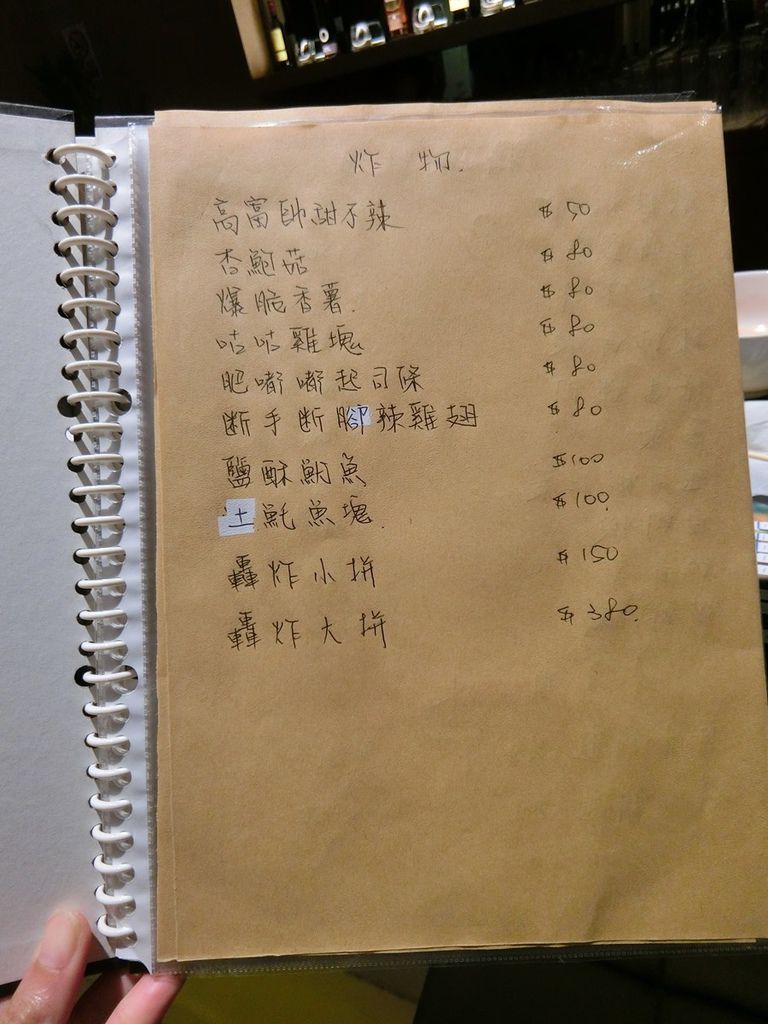 炸物.
高富帥甜不辣 $50
杏鮑菇 $80
爆脆香薯. $80
咕咕雞塊 $80
肥嘟嘟起司條 $80
断手断腳辣雞翅 $80
鹽酥魩魚 $100
土魠魚塊. $100
轟炸小拼 $150
轟炸大拼 $380.